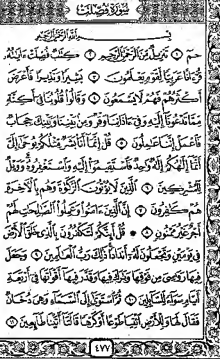 سورة فصلت
بسم الله الرحمن الرحيم
حم ١ تنزيل من الرحمن الرحيم ٢ كتاب فصلت ءاياته
قرءانا عربيا لقوم يعلمون ٣ بشيرا ونذيرا فأعرض
أكثرهم فهم لا يسمعون ٤ وقالوا قلوبنا في أكنة
مما تدعونا إليه وفي ءاذاننا وقر ومن بيننا وبينك حجاب
فاعمل إننا عاملون ٥ قل إنما أنا بشر مثلكم يوحى إلي
أنما إلهكم إله واحد فاستقيموا إليه واستغفروه وويل
للمشركين ٦ الذين لا يؤتون الزكوة وهم بالأخرة
هم كافرون ٧ إن الذين ءامنوا وعملوا الصالحات لهم
أجر غير ممنون ٨ قل أئنكم لتكفرون بالذي خلق الأرض
في يومين وتجعلون له أندادا ذلك رب العالمين ٩ وجعل
فيها رواسي من فوقها وبارك فيها وقدر فيها أقواتها في أربعة
أيام سواء للسائلين ١٠ ثم استوى إلى السماء وهي دخان
فقال لها وللأرض ائتيا طوعا أو كرها قالتا أتينا طائعين ١١
٤٧٧